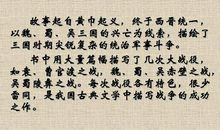 故事起自黄巾起义，终于西晋统一，
以魏、蜀、吴三国的兴亡为线索，描绘了
三国时期尖锐复杂的统治军事斗争。
书中用大量篇幅描写了几次大战役，
如袁、曹官渡之战，魏、蜀、吴赤壁之战，
吴蜀彝陵之战。每次战役各有特色，很少
雷同，是我国古典文学中描写战争的成功
之作。